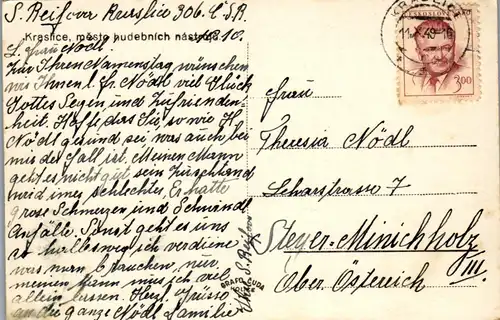 S. Reif Kraslice 306. Č.S.R.
Kraslice, město hudebních nástrojů
10.
L. Frau Nödl.
Zur Ihren Namenstag wünschen
wir Ihnen l. Fr. Nödl viel Glück
Gottes Segen und Zufrieden-
heit. Hoffe das Sie, sowie H.
Nödl gesund sei was auch bei
mir der Fall ist. Meinen Mann
geht es nicht gut sein Zuschtand
wird imer schlechter. Er hatte
grose Schmerzen und Schwindl
Anfälle. Sonst geht es uns
so halbsweg ich verdiene
was man brauchen, nur
meinen Mann mus ich viel
allein lassen. Herzl. Grüsse
an die ganze Nödl Familie
S. Reif
GRAFO ČUDA
KRASLICE
11.X.49-16
ČESKOSLOVENSKO
3.00
Frau
Theresia Nödl
Scharstrasse 7
Steyer-Minichholz
III.
Ober. Österreich